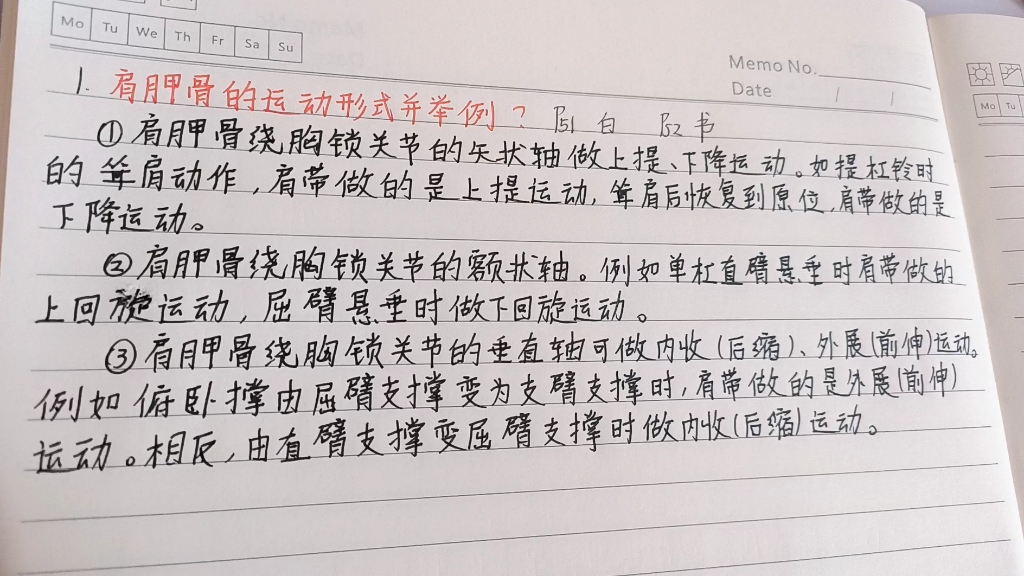 Mo Tu We Th Fr Sa Su
Memo No.
Date / /
1. 肩胛骨的运动形式并举例? P51 白 P52 书
①肩胛骨绕胸锁关节的矢状轴做上提、下降运动。如提杠铃时
的耸肩动作,肩带做的是上提运动,耸肩后恢复到原位,肩带做的是
下降运动。
②肩胛骨绕胸锁关节的额状轴。例如单杠直臂悬垂时肩带做的
上回旋运动,屈臂悬垂时做下回旋运动。
③肩胛骨绕胸锁关节的垂直轴可做内收(后缩)、外展(前伸)运动。
例如俯卧撑由屈臂支撑变为支臂支撑时,肩带做的是外展(前伸)
运动。相反,由直臂支撑变屈臂支撑时做内收(后缩)运动。
Mo Tu